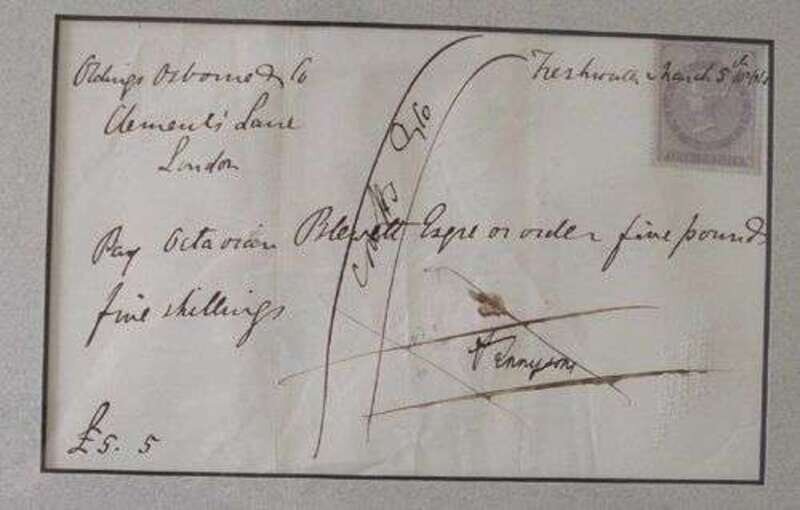 Oldings Osborne & Co
Clement's Lane
London
Freshwater March 5th
Coutts & Co
Pay Octavian Blewett Esqre or order five pounds
five shillings
Tennyson
£5. 5